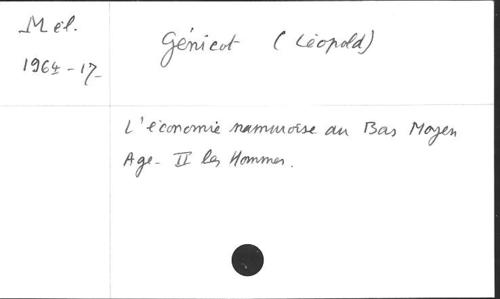 Mél.
1964-17-
Génicot (Léopold)
L'économie namuroise au Bas Moyen
Age- II les Hommes.